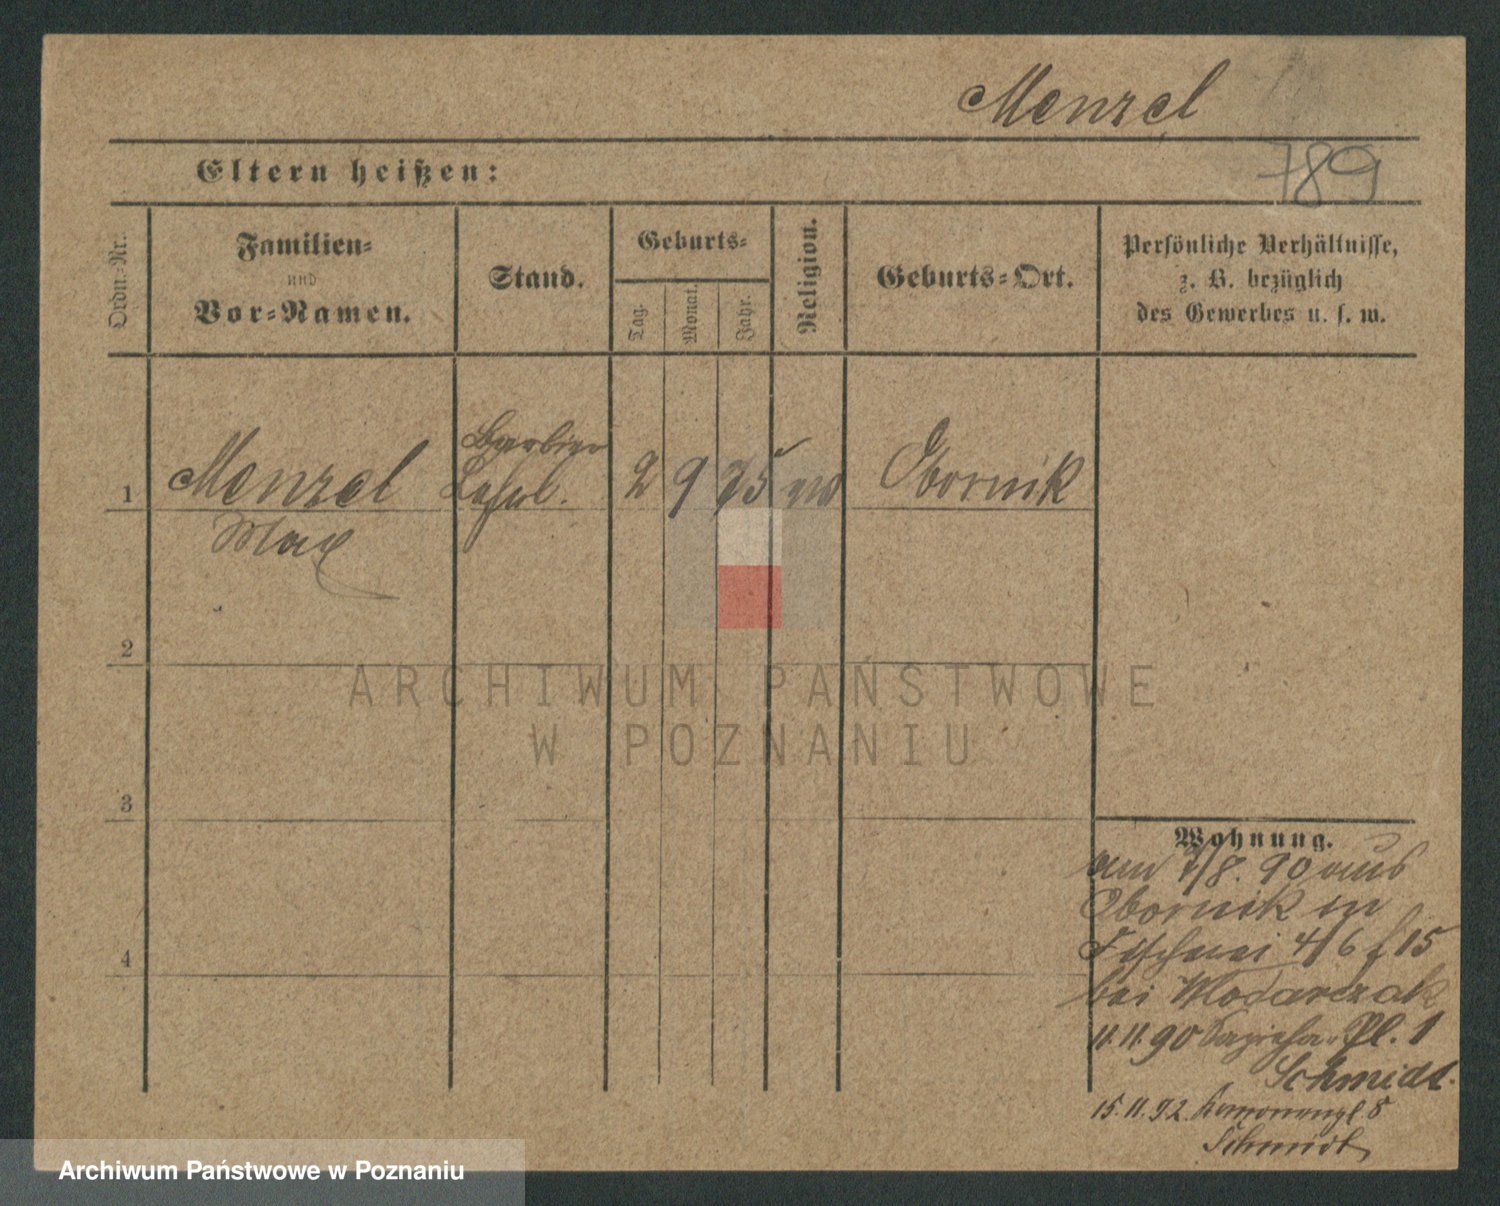 Menzel
789
Eltern heißen:
Ordn.-Nr.
Familien-
und
Vor-Namen.
Stand.
Geburts-
Tag.
Monat.
Jahr.
Religion.
Geburts-Ort.
Persönliche Verhältnisse,
z. B. bezüglich
des Gewerbes u. s. w.
1 Menzel Barbier 2 9 75 Obornik
Max
2
3
4
Wohnung.
am 8. 90 aus
Obornik in
Fischerei 4/6 15
bei Wlodarczak
11.11.90 Pl. 1
Schmidt.
15.11.92. 8
Schmidt
ARCHIWUM PAŃSTWOWE
W POZNANIU
Archiwum Państwowe w Poznaniu